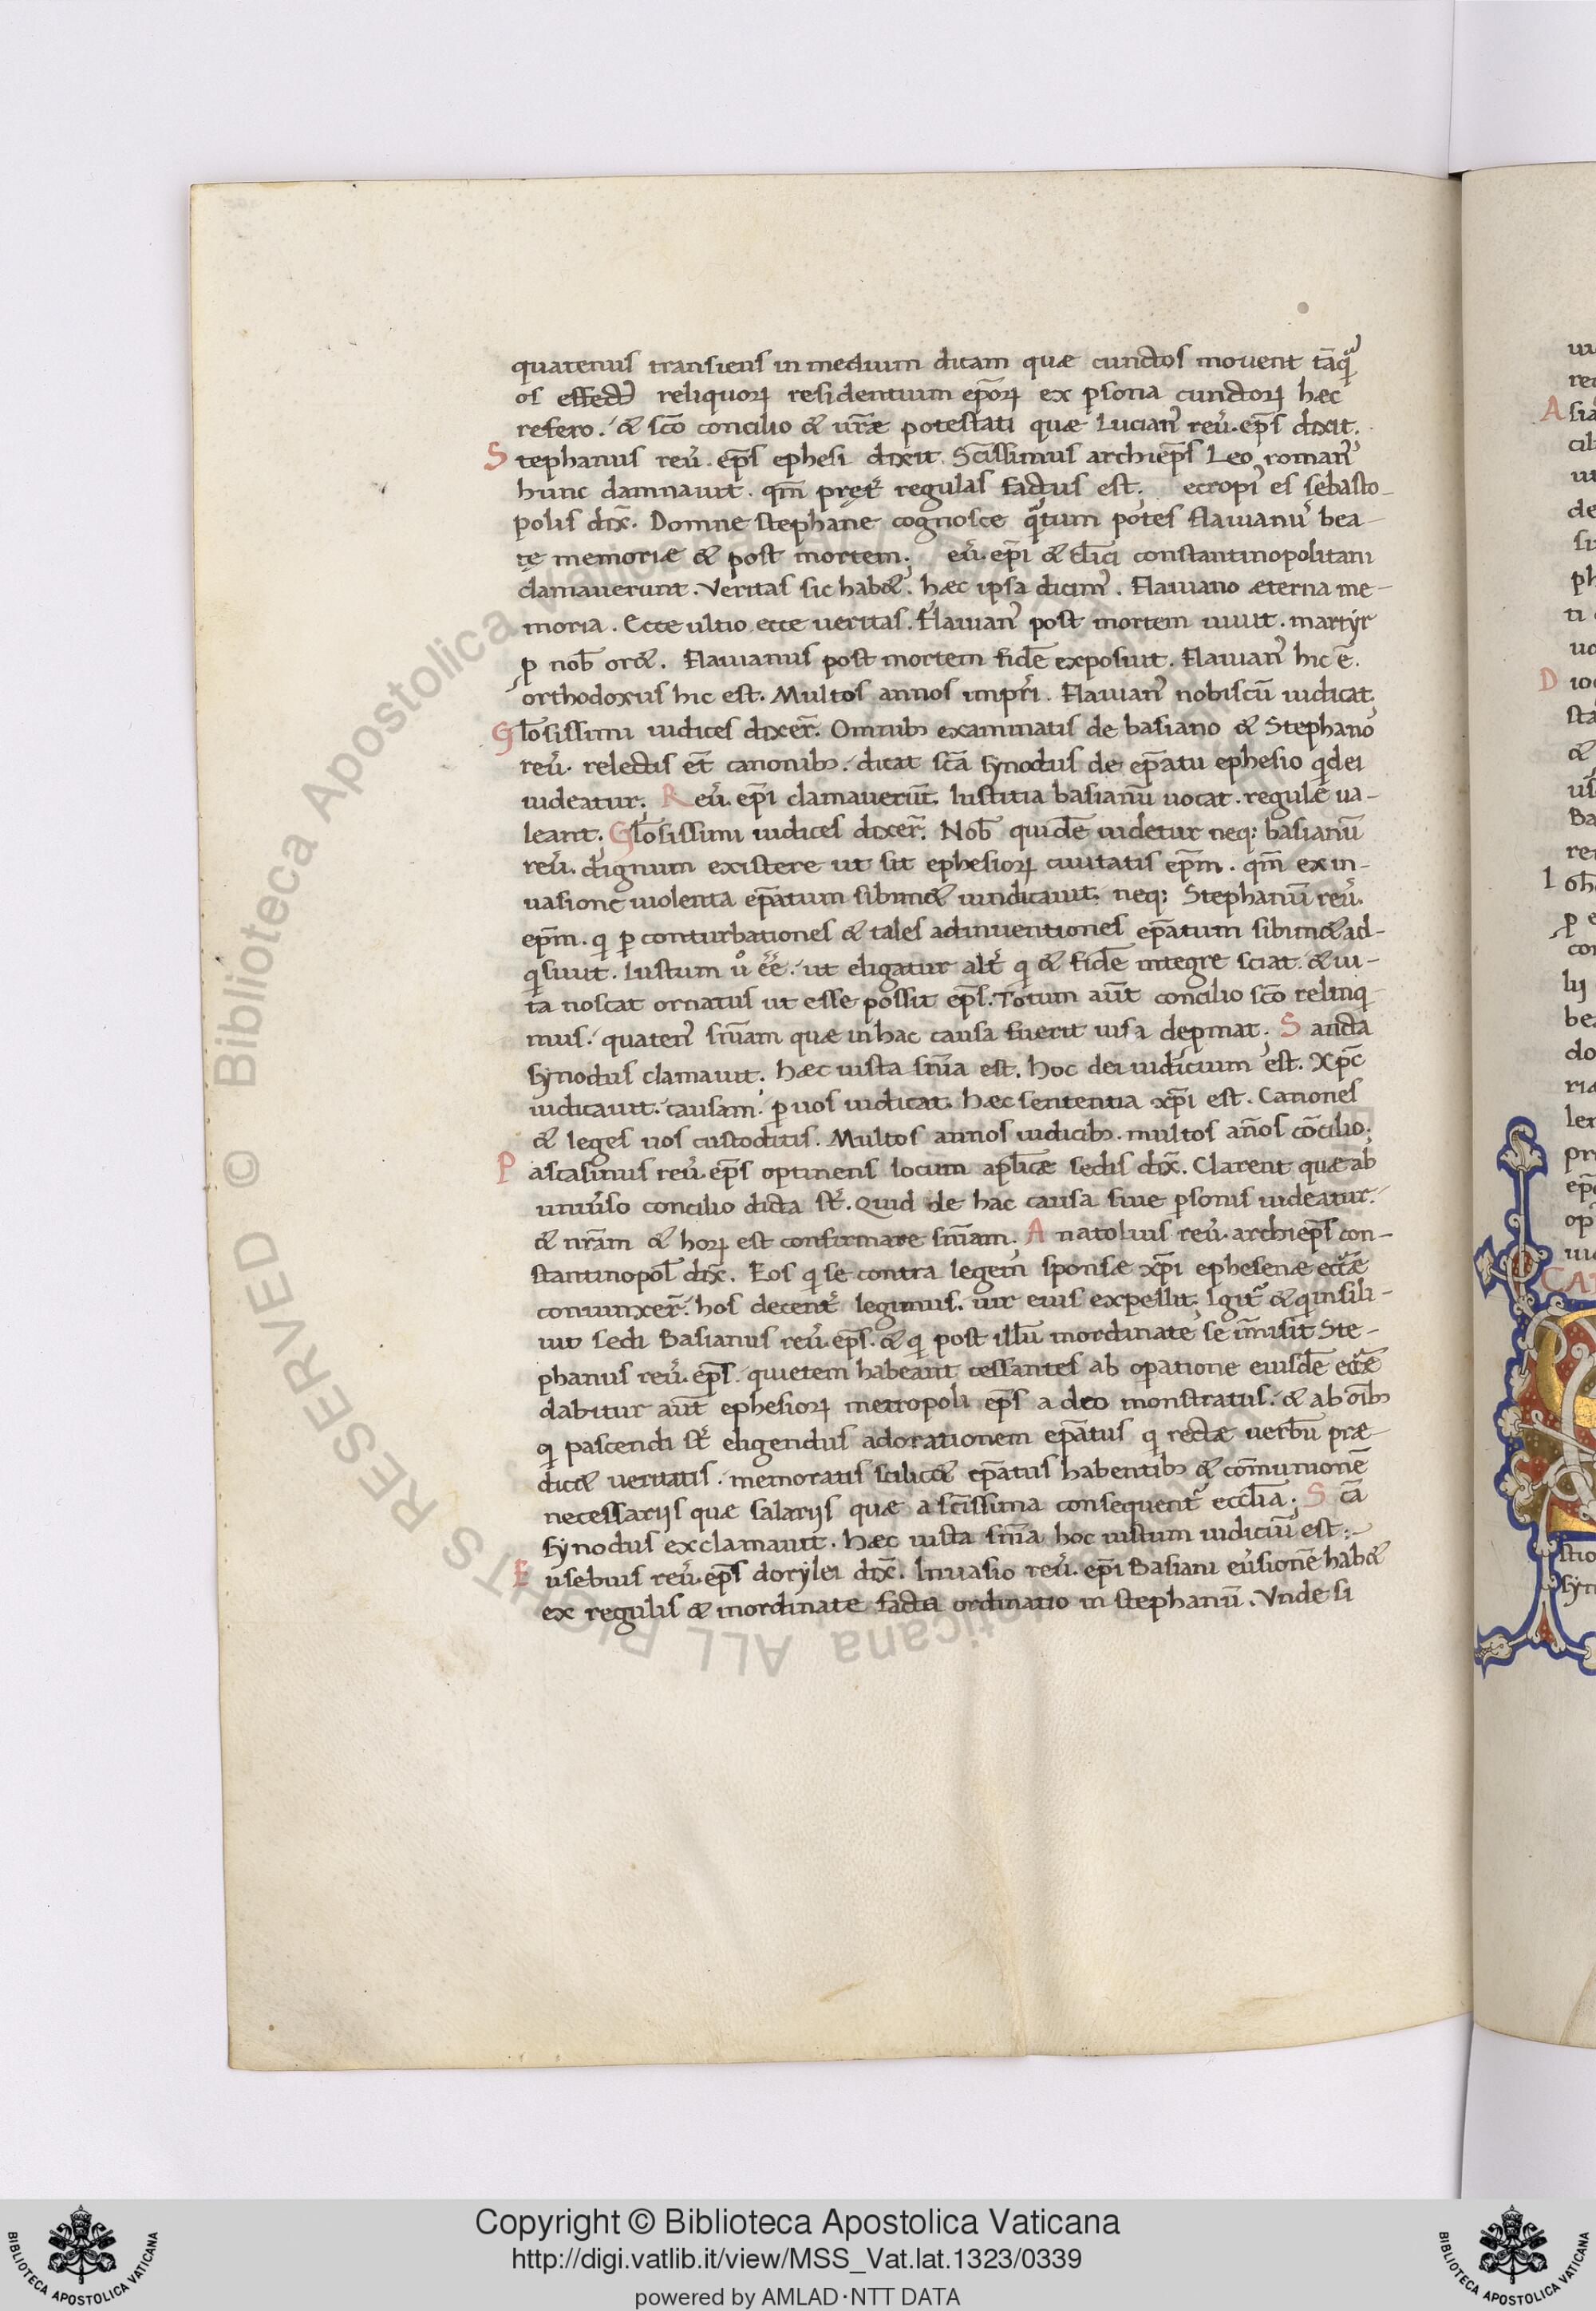 quatenus transiens in medium dicam quæ cunctos movent tāqͣ
os effect᾽ reliquoꝝ residentium ep̄oꝝ ex ꝑsona cunctoꝝ hæc
refero. & sc̄o concilio & ur̄æ potestati quæ Lucian᾽ reu᾽. ep̄s dixit.
Stephanus reu᾽. ep̄s ephesi dixit. Sc̄issimus archiep̄s Leo roman᾽
hunc damnauit. qm̄ pręt᾽ regulas factus est. ecropi᾽ es sebasto-
polis dix̄. Domne stephane cognosce qͣtum potes flauianu᾽ bea-
tę memoriæ & post mortem. eu᾽. ep̄i & cl̄ici constantinopolitani
clamauerunt. Veritas sic hab&. hæc ipsa dicim᾽. Flauiano æterna me-
moria. Ecce ultio. ecce ueritas. Flauian᾽ post mortem uiuit. martyr
ꝓ nob̄ or&. Flauianus post mortem fidē exposuit. Flauian᾽ hic ē.
orthodoxus hic est. Multos annos impr̄i. Flauian᾽ nobiscū iudicat.
Gl̄osissimi iudices dixer̄. Omnibꝫ examinatis de basiano & Stephano
reu᾽. relectis et̄ canonibꝫ. dicat sc̄a synodus de ep̄atu ephesio qͥ dei
uideatur. Reu᾽. ep̄i clamauerūt. Iustitia basianū uocat. regulę ua-
leant. Gl̄osissimi iudices dixer̄. Nob̄ quidē uidetur neqꝫ basianū
reu᾽. dignum existere ut sit ephesioꝝ ciuitatis ep̄m. qm̄ ex in-
uasione uiolenta ep̄atum sibim& uindicauit. neqꝫ Stephanū reu᾽.
ep̄m. qͥ ꝑ conturbationes & tales adinuentiones ep̄atum sibim& ad-
qͥsiuit. Iustum uͦ ēē. ut eligatur alt᾽ qͥ & fidē integre sciat. & ui-
ta noscat ornatus ut esse possit ep̄s. Totum aūt concilio sc̄o relinqͥ-
mus. quaten᾽ sn̄iam quæ in hac causa fuerit uisa depmat. Sancta
synodus clamauit. hæc iusta sn̄ia est. hoc dei iudicium est. Xp̄c
iudicauit. causam. ꝑ uos iudicat. hæc sententia xp̄i est. Canones
& leges uos custoditis. Multos annos iudicibꝫ. multos an̄os cōcilio.
Pascasinus reu᾽. ep̄s optinens locum apl̄icæ sedis dix̄. Clarent quæ ab
uniu᾽so concilio dicta st᾽. Quid de hac causa siue ꝑsonis uideatur.
& nr̄am & hoꝝ est confirmare sn̄iam. Anatolius reu᾽. archiep̄s con-
stantinopol̄ dix̄. Eos qͥ se contra legem sponsæ xp̄i ephesenæ eccl̄æ
coniunxer̄. hos decent᾽ legimus. uir eius expellit. Igit᾽ & qͥ insili-
uit sedi Basianus reu᾽. ep̄s. & qͥ post illū inordinate se īmisit Ste-
phanus reu᾽. ep̄s. quietem habeant cessantes ab opatione eiusdē eccl̄æ
dabitur aūt ephesioꝝ metropoli ep̄s a deo monstratus. & ab oīibꝫ
qͥ pascendi st᾽ eligendus adorationem ep̄atus qͥ rectæ uerbū præ-
dic& ueritatis. memoratis scilic& ep̄atus habentibꝫ & cōmunionē
necessarijs quæ salarijs quæ a sc̄issima consequent᾽ eccl̄ia. Sc̄a
synodus exclamauit. hæc iusta sn̄ia hoc iustum iudiciū est.
Eusebius reu᾽. ep̄s dorylei dix̄. Inuasio reu᾽. ep̄i Basiani eu᾽sionē hab&
ex regulis & inordinate facta ordinatio in stephanū. Vnde si
Copyright © Biblioteca Apostolica Vaticana
http://digi.vatlib.it/view/MSS_Vat.lat.1323/0339
powered by AMLAD·NTT DATA